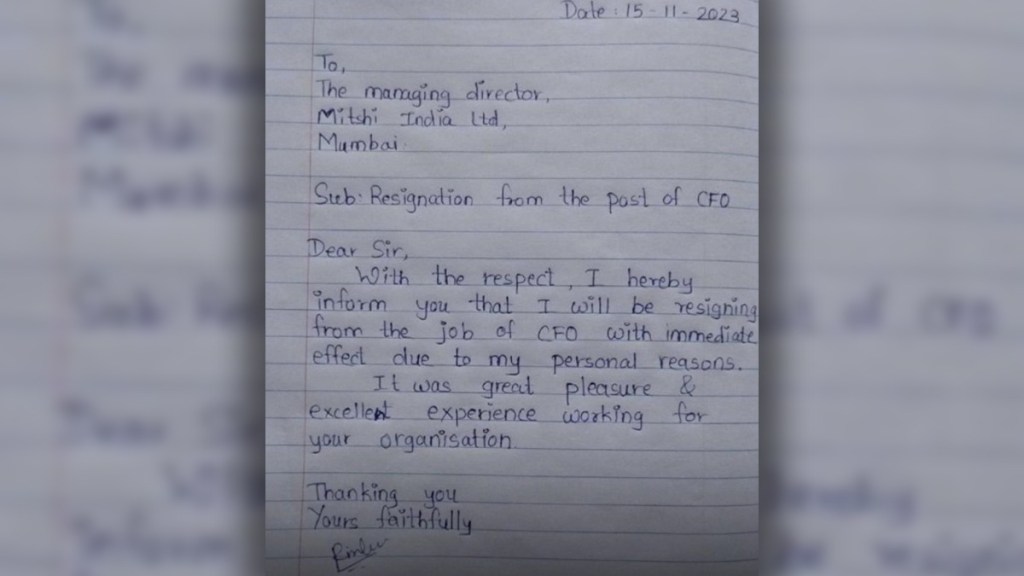 Date : 15-11-2023
To,
The managing director,
Mitshi India Ltd,
Mumbai.
Sub: Resignation from the post of CFO
Dear Sir,
With the respect, I hereby
inform you that I will be resigning
from the job of CFO with immediate
effect due to my personal reasons.
It was great pleasure &
excellent experience working for
your organisation.
Thanking you
Yours faithfully